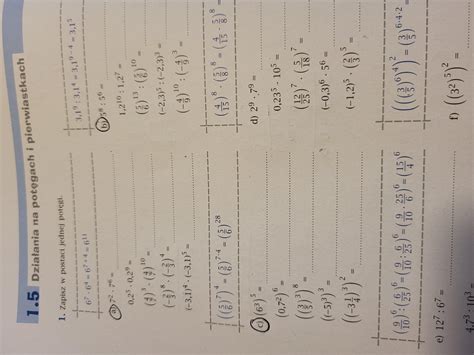 1.5 Działania na potęgach i pierwiastkach
1. Zapisz w postaci jednej potęgi.
6⁷ · 6⁴ = 6⁷⁺⁴ = 6¹¹
a) 7² · 7⁶ =
0,2⁵ · 0,2⁹ =
(4/7)³ · (4/7)¹⁰ =
(-2/3)⁸ · (-2/3)⁴ =
(-3,1)⁴ · (-3,1)⁵ =
3,1⁹ : 3,1⁴ = 3,1⁹⁻⁴ = 3,1⁵
b) 5⁸ : 5⁶ =
1,2¹⁰ : 1,2⁷ =
(5/6)¹³ : (5/6)¹⁰ =
(-2,3)⁵ : (-2,3)³ =
(-4/9)¹⁰ : (-4/9)³ =
((5/6)⁷)⁴ = (5/6)⁷˙⁴ = (5/6)²⁸
c) (6³)⁵ =
(0,7²)⁶ =
((1/3)³)⁸ =
((-5)³)⁷ =
((-3 1/4)³)² =
(4/15)⁸ · (5/8)⁸ = (4/15 · 5/8)⁸ =
d) 2⁹ · 7⁹ =
0,23⁵ · 10⁵ =
(12/25)⁷ · (5/18)⁷ =
(-0,3)⁶ · 5⁶ =
(-1,2)⁵ · (2/3)⁵ =
(9/10)⁶ : (6/25)⁶ = (9/10 : 6/25)⁶ = (9/10 · 25/6)⁶ = (15/4)⁶
e) 12⁷ : 6⁷ =
(((3/5)⁶)⁴)² = (3/5)⁶˙⁴˙²
f) ((3²)⁵)² =